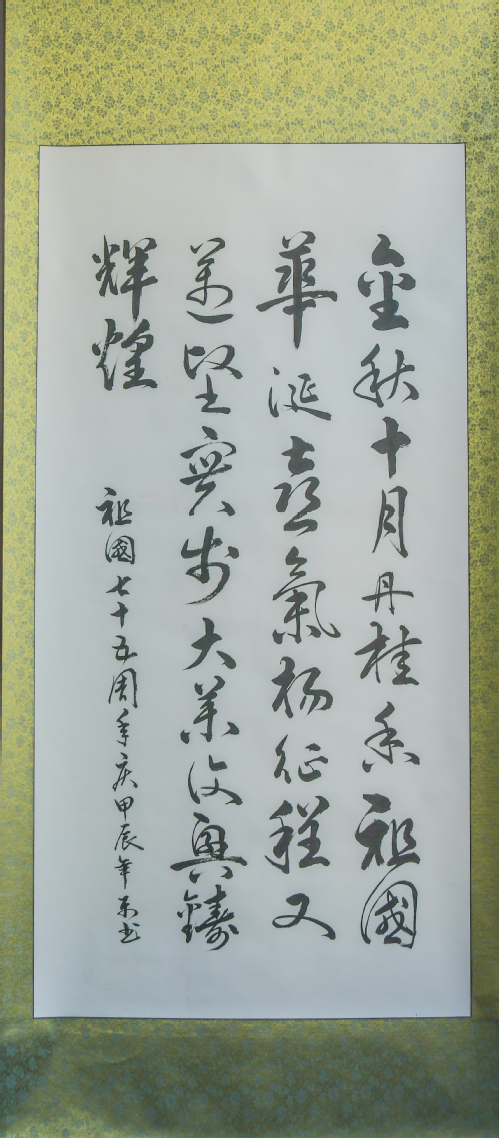 金秋十月丹桂香祖國
華誕喜氣楊征程又
邁堅實步大業復興鑄
輝煌
祖國七十五周年庆甲辰年书